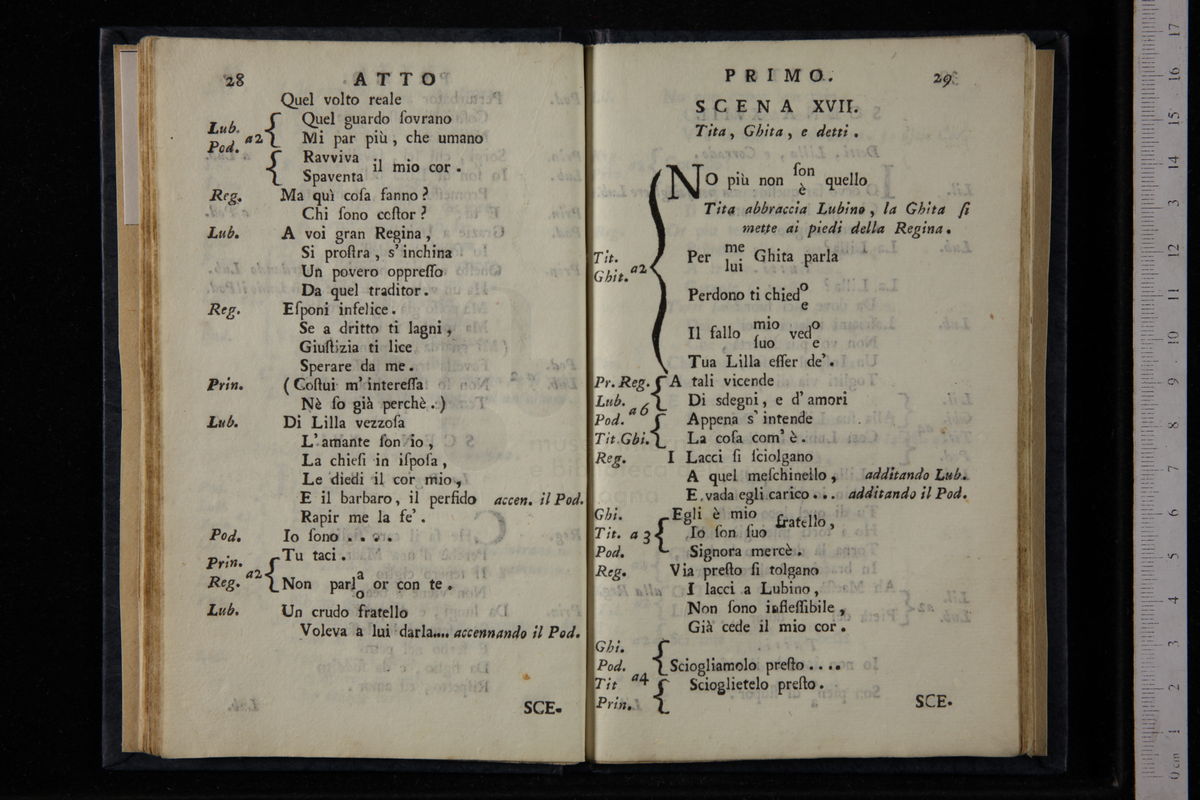 28 ATTO
Quel volto reale
Quel guardo ſovrano
Lub. Pod. a2 Mi par più, che umano
Ravviva
Spaventa il mio cor.
Reg. Ma quì coſa fanno?
Chi ſono coſtor?
Lub. A voi gran Regina,
Si proſtra, s'inchina
Un povero oppreſſo
Da quel traditor.
Reg. Eſponi infelice.
Se a dritto ti lagni,
Giuſtizia ti lice
Sperare da me.
Prin. (Coſtui m'intereſſa
Nè ſo già perchè.)
Lub. Di Lilla vezzoſa
L'amante ſon io,
La chieſi in iſpoſa,
Le diedi il cor mio,
E il barbaro, il perfido accen. il Pod.
Rapir me la fe'.
Pod. Io ſono . . . .
Prin. Tu taci.
Reg. a2 Non parla/o or con te.
Lub. Un crudo fratello
Voleva a lui darla.... accennando il Pod.
SCE-
PRIMO. 29
SCENA XVII.
Tita, Ghita, e detti.
NO più non ſon/è quello
Tita abbraccia Lubino, la Ghita ſi
mette ai piedi della Regina.
Tit. Ghit. a2 Per me/lui Ghita parla
Perdono ti chiedo/e
Il fallo mio/ſuo vedo/e
Tua Lilla eſſer de'.
Pr. Reg. A tali vicende
Lub. a 6 Di sdegni, e d'amori
Pod. Appena s'intende
Tit. Ghi. La coſa com'è.
Reg. I Lacci ſi ſciolgano
A quel meſchinello, additando Lub.
E vada egli carico... additando il Pod.
Ghi. Egli è mio
Tit. a 3 Io ſon ſuo fratello,
Pod. Signora mercè.
Reg. Via preſto ſi tolgano
I lacci a Lubino,
Non ſono infleſſibile,
Già cede il mio cor.
Ghi.
Pod. Sciogliamolo preſto....
Tit a4 Scioglietelo preſto.
Prin.
SCE-
17
16
15
14
13
12
11
10
9
8
7
6
5
4
3
2
1
0 cm